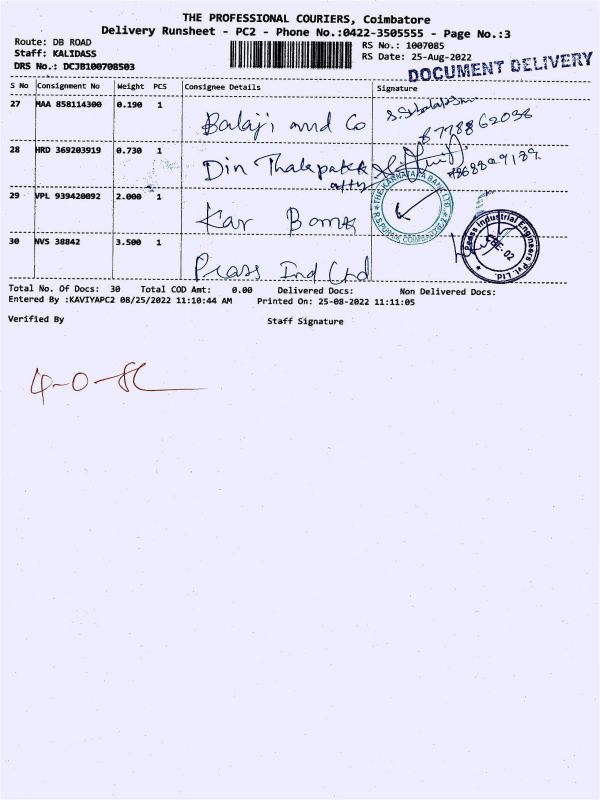 THE PROFESSIONAL COURIERS, Coimbatore
Delivery Runsheet - PC2 - Phone No.:0422-3505555 - Page No.:3
Route: DB ROAD
Staff: KALIDASS
DRS No.: DCJB100708503
RS No.: 1007085
RS Date: 25-Aug-2022
DOCUMENT DELIVERY
S No Consignment No Weight PCS Consignee Details Signature
27 MAA 858114300 0.190 1 Balaji and Co
28 HRD 369203919 0.730 1 Din Thalapathi
29 VPL 939420092 2.000 1 Kar Bank
THE KARNATAKA BANK LTD.
30 NVS 38842 3.500 1 Press Ind Ltd
Press Industrial Engineers Pvt. Ltd.
CBE-02
Total No. Of Docs: 30 Total COD Amt: 0.00 Delivered Docs: Non Delivered Docs:
Entered By :KAVIYAPC2 08/25/2022 11:10:44 AM Printed On: 25-08-2022 11:11:05
Verified By Staff Signature